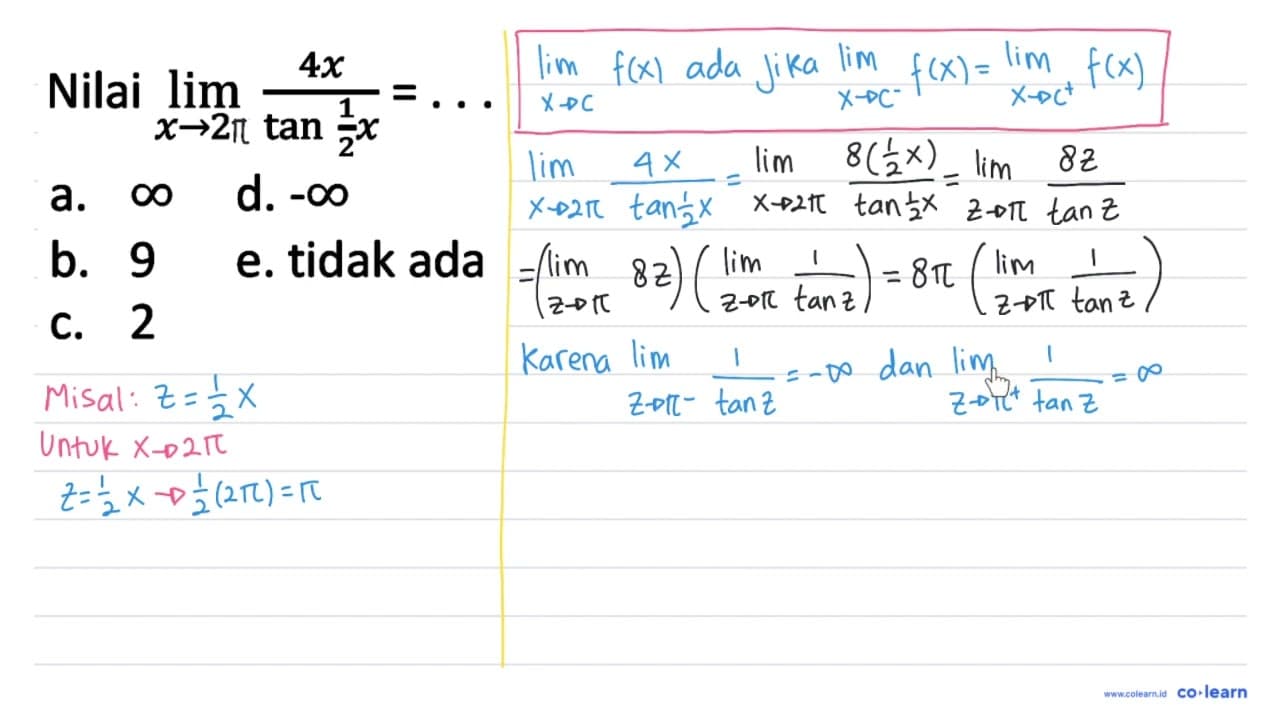 Nilai lim x→2π 4x / tan 1/2 x = . . .
a. ∞ d. -∞
b. 9 e. tidak ada
c. 2
Misal: z = 1/2 x
Untuk x→2π
z = 1/2 x → 1/2 (2π) = π
lim x→c f(x) ada jika lim x→c⁻ f(x) = lim x→c⁺ f(x)
lim x→2π 4x / tan 1/2 x = lim x→2π 8(1/2 x) / tan 1/2 x = lim z→π 8z / tan z
= (lim z→π 8z) (lim z→π 1 / tan z) = 8π (lim z→π 1 / tan z)
Karena lim z→π⁻ 1 / tan z = -∞ dan lim z→π⁺ 1 / tan z = ∞
www.colearn.id co·learn